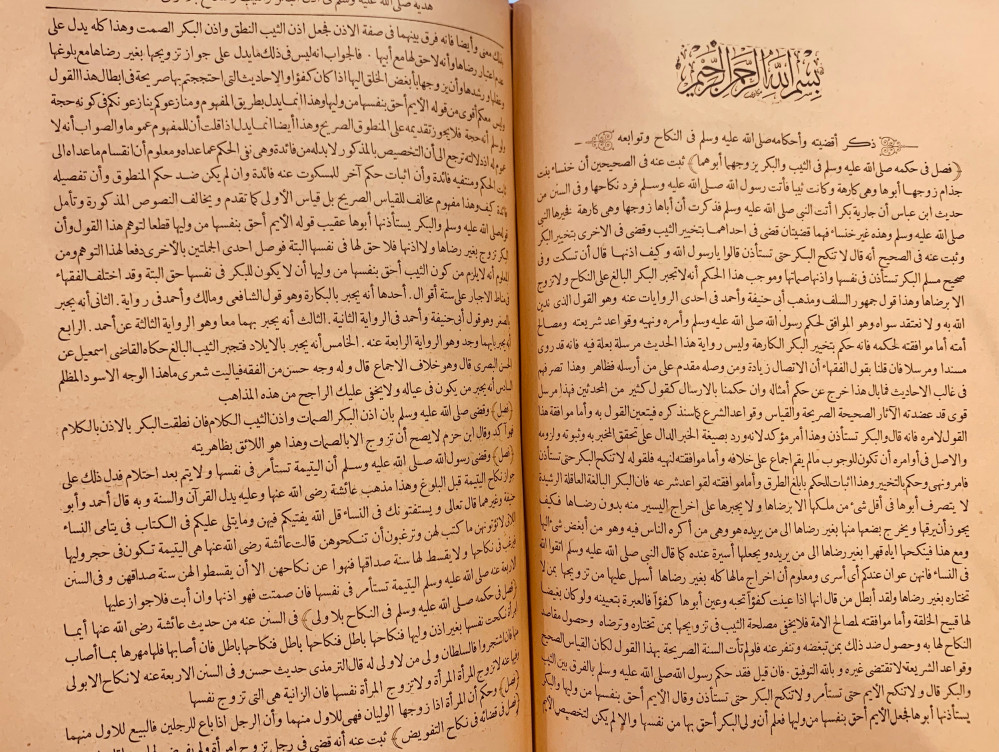 بسم الله الرحمن الرحيم
ذكر أقضيته وأحكامه صلى الله عليه وسلم فى النكاح وتوابعه
﴿فصل فى حكمه صلى الله عليه وسلم فى الثيب والبكر يزوجهما أبوهما﴾ ثبت عنه فى الصحيحين أن خنساء بنت
جذام زوجهما أبوها وهى كارهة وكانت ثيبا فأتت رسول الله صلى الله عليه وسلم فرد نكاحها وفى السنن من
حديث ابن عباس أن جارية بكرا أتت النبى صلى الله عليه وسلم فذكرت أن أباها زوجها وهى كارهة فخيرها النبى
صلى الله عليه وسلم وهذه غير خنساء فهما قضيتان قضى فى احداهما بتخيير الثيب وقضى فى الاخرى بتخيير البكر
وثبت عنه فى الصحيح أنه قال لا تنكح البكر حتى تستأذن قالوا يا رسول الله وكيف اذنها قال أن تسكت وفى
صحيح مسلم البكر تستأذن فى نفسها واذنها صماتها وموجب هذا الحكم أنه لا تجبر البكر البالغ على النكاح ولا تزوج
الا برضاها وهذا قول جمهور السلف ومذهب أبى حنيفة وأحمد فى احدى الروايات عنه وهو القول الذى ندين
الله به ولا نعتقد سواه وهو الموافق لحكم رسول الله صلى الله عليه وسلم وأمره ونهيه وقواعد شريعته ومصالح
أمته أما موافقته لحكمه فانه حكم بتخيير البكر الكارهة وليس رواية هذا الحديث مرسلة بعلة فيه فانه قد روى
مسندا ومرسلا فان قلنا بقول الفقهاء أن الاتصال زيادة ومن وصله مقدم على من أرسله فظاهر وهذا تصرفهم
فى غالب الاحاديث فما بال هذا خرج عن حكم أمثاله وان حكمنا بالارسال كقول كثير من المحدثين فهذا مرسل
قوى قد عضدته الآثار الصحيحة الصريحة والقياس وقواعد الشرع كما سنذكره فيتعين القول به وأما موافقة هذا
القول لامره فانه قال والبكر تستأذن وهذا أمر مؤكد لانه ورد بصيغة الخبر الدال على تحقق المخبر به وثبوته ولزومه
والاصل فى أوامره أن تكون للوجوب مالم يقم اجماع على خلافه وأما موافقته لنهيه فلقوله لا تنكح البكر حتى تستأذن
فأمر ونهى وحكم بالتخيير وهذا اثبات للحكم بأبلغ الطرق وأما موافقته لقواعد شرعه فان البكر البالغة العاقلة الرشيدة
لا يتصرف أبوها فى أقل شىء من ملكها الا برضاها ولا يجبرها على اخراج اليسير منه بدون رضاها فكيف
يجوز أن يرقها ويخرج بضعها منها بغير رضاها الى من يريده هو وهى من أكره الناس فيه وهو من أبغض شىء اليها
ومع هذا فينكحها اياه قهرا بغير رضاها الى من يريده ويجعلها أسيرة عنده كما قال النبى صلى الله عليه وسلم اتقوا الله
فى النساء فانهن عوان عندكم أى أسرى ومعلوم أن اخراج مالها كله بغير رضاها أسهل عليها من تزويجها بمن لا
تختاره بغير رضاها ولقد أبطل من قال انها اذا عينت كفؤا تحبه وعين أبوها كفؤا فالعبرة بتعيينه ولو كان بغيضا
لها قبيح الخلقة وأما موافقته لمصالح الامة فلا يخفى مصلحة الثيب فى تزويجها بمن تختاره وترضاه وحصول مقاصد
النكاح لها به وحصول ضد ذلك بمن تبغضه وتنفر عنه فلو لم تأت السنة الصريحة بهذا القول لكان القياس الصحيح
وقواعد الشريعة لا تقتضى غيره وبالله التوفيق. فان قيل فقد حكم رسول الله صلى الله عليه وسلم بالفرق بين الثيب
والبكر قال ولا تنكح الأيم حتى تستأمر ولا تنكح البكر حتى تستأذن وقال الأيم أحق بنفسها من وليها والبكر
يستأذنها أبوها فجعل الأيم أحق بنفسها من وليها فعلم أن ولى البكر أحق بها من نفسها والا لم يكن لتخصيص الأيم
هديه صلى الله عليه وسلم فى اذن البكر والثيب
بذلك معنى وأيضا فانه فرق بينهما فى صفة الاذن فجعل اذن الثيب النطق واذن البكر الصمت وهذا كله يدل على
عدم اعتبار رضاها وأنه لا حق لها مع أبيها . فالجواب انه ليس فى ذلك ما يدل على جواز تزويجها بغير رضاها مع بلوغها
وعقلها ورشدها وأن يزوجها بأبغض الخلق اليها اذا كان كفؤا والاحاديث التى احتججتم بها صريحة فى ابطال هذا القول
وليس معكم أقوى من قوله الأيم أحق بنفسها من وليها وهذا انما يدل بطريق المفهوم ومنازعوكم ينازعونكم فى كونه حجة
ولو سلم أنه حجة فلا يجوز تقديمه على المنطوق الصريح وهذا أيضا انما يدل اذا قلت أن للمفهوم عموما والصواب أنه لا
عموم له اذ دلالته ترجع الى أن التخصيص بالمذكور لا بد له من فائدة وهى نفى الحكم عما عداه ومعلوم أن انقسام ما عداه الى
ثابت الحكم ومنتفيه فائدة وأن اثبات حكم آخر للمسكوت عنه فائدة وان لم يكن ضد حكم المنطوق وأن تفصيله
فائدة كيف وهذا مفهوم مخالف للقياس الصريح بل قياس الأولى كما تقدم ويخالف النصوص المذكورة وتأمل
قوله صلى الله عليه وسلم والبكر يستأذنها أبوها عقيب قوله الأيم أحق بنفسها من وليها قطعا لتوهم هذا القول وأن
البكر تزوج بغير رضاها ولا اذنها فلا حق لها فى نفسها البتة فوصل احدى الجملتين بالأخرى دفعا لهذا التوهم ومن
المعلوم أنه لا يلزم من كون الثيب أحق بنفسها من وليها أن لا يكون للبكر فى نفسها حق البتة وقد اختلف الفقهاء
فى مناط الاجبار على ستة أقوال . أحدها أنه يجبر بالبكارة وهو قول الشافعى ومالك وأحمد فى رواية . الثانى أنه يجبر
بالصغر وهو قول أبى حنيفة وأحمد فى الرواية الثانية . الثالث أنه يجبر بهما معا وهو الرواية الثالثة عن أحمد . الرابع
أنه يجبر بأيهما وجد وهو الرواية الرابعة عنه . الخامس أنه يجبر بالايلاد فتجبر الثيب البالغ حكاه القاضى اسمعيل عن
الحسن البصرى قال وهو خلاف الاجماع قال وله وجه حسن من الفقه فياليت شعرى ما هذا الوجه الاسود المظلم
السادس أنه يجبر من يكون فى عياله ولا يخفى عليك الراجح من هذه المذاهب
﴿فصل﴾ وقضى صلى الله عليه وسلم بان اذن البكر الصمات واذن الثيب الكلام فان نطقت البكر بالاذن بالكلام
فهو آكد وقال ابن حزم لا يصح أن تزوج الا بالصمات وهذا هو اللائق بظاهريته
﴿فصل﴾ وقضى رسول الله صلى الله عليه وسلم أن اليتيمة تستأمر فى نفسها ولا يتم بعد احتلام فدل ذلك على
جواز نكاح اليتيمة قبل البلوغ وهذا مذهب عائشة رضى الله عنها وعليه يدل القرآن والسنة وبه قال أحمد وأبو
حنيفة وغيرهما قال تعالى ويستفتونك فى النساء قل الله يفتيكم فيهن وما يتلى عليكم فى الكتاب فى يتامى النساء
اللاتى لا تؤتونهن ما كتب لهن وترغبون أن تنكحوهن قالت عائشة رضى الله عنها هى اليتيمة تكون فى حجر وليها
فيرغب فى نكاحها ولا يقسط لها سنة صداقها فنهوا عن نكاحهن الا أن يقسطوا لهن سنة صداقهن وفى السنن
الاربعة عنه صلى الله عليه وسلم اليتيمة تستأمر فى نفسها فان صمتت فهو اذنها وان أبت فلا جواز عليها
﴿فصل فى حكمه صلى الله عليه وسلم فى النكاح بلا ولى﴾ فى السنن عنه من حديث عائشة رضى الله عنها أيما
امرأة نكحت نفسها بغير اذن وليها فنكاحها باطل فنكاحها باطل فنكاحها باطل فان أصابها فلها مهرها بما أصاب
منها فان اشتجروا فالسلطان ولى من لا ولى له قال الترمذى حديث حسن وفى السنن الاربعة عنه لا نكاح الا بولى
وفيها عنه لا تزوج المرأة المرأة ولا تزوج المرأة نفسها فان الزانية هى التى تزوج نفسها
﴿فصل﴾ وحكم أن المرأة اذا زوجها الوليان فهى للاول منهما وأن الرجل اذا باع للرجلين فالبيع للاول منهما
﴿فصل فى قضائه فى نكاح التفويض﴾ ثبت عنه أنه قضى فى رجل تزوج امرأة ولم يفرض لها